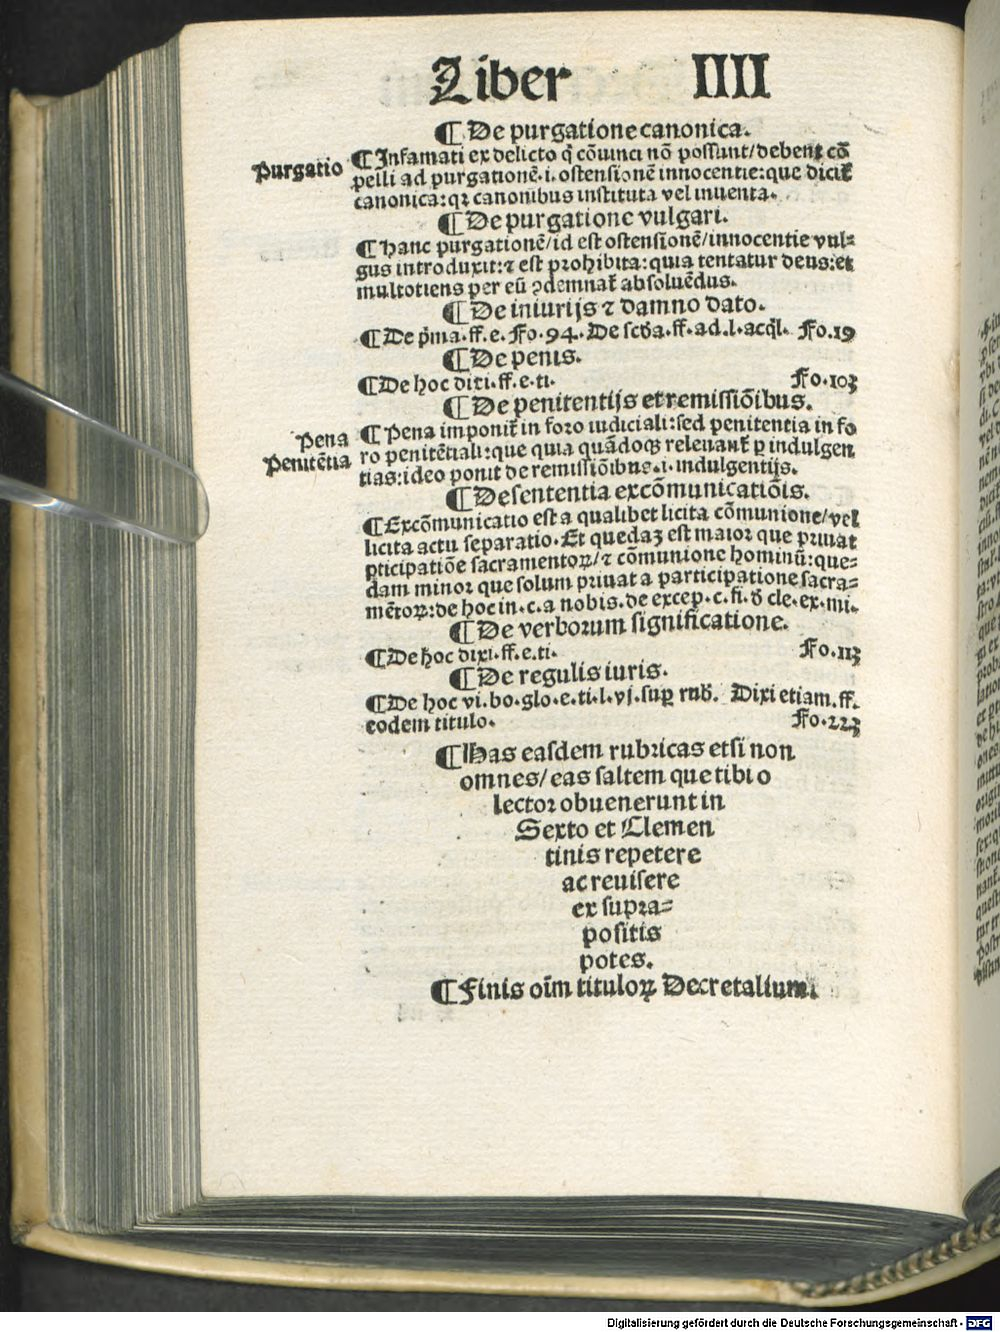 Liber IIII
¶ De purgatione canonica.
Purgatio
¶ Infamati ex delicto q̄ cōuinci nō possunt/debent cō
pelli ad purgationē.i.ostensionē innocentie:que dicit̄
canonica:qꝛ canonibus instituta vel inuenta.
¶ De purgatione vulgari.
¶ Hanc purgationē/id est ostensionē/innocentie vul⸗
gus introduxit:⁊ est prohibita:quia tentatur deus:et
multotiens per eū ꝯdemnat̄ absoluēdus.
¶ De iniurijs ⁊ damno dato.
¶ De p̄ma.ff.e. Fo.94. De scd̄a.ff.ad.l.acq̄l. Fo.19
¶ De penis.
¶ De hoc dixi.ff.e.ti. Fo.103
¶ De penitentijs et remissiōibus.
Pena
Penitētia
¶ Pena imponit̄ in foro iudiciali:sed penitentia in fo
ro penitētiali:que quia quādoqꝫ releuant̄ ꝑ indulgen
tias:ideo ponit de remissiōibus.i.indulgentijs.
¶ De sententia excōmunicatiōis.
¶ Excōmunicatio est a qualibet licita cōmunione/vel
licita actu separatio. Et quedaꝫ est maior que priuat
ꝑticipatiōe sacramentoꝝ/⁊ cōmunione hominū:que⸗
dam minor que solum priuat a participatione sacra⸗
mētoꝝ:de hoc in.c.a nobis.de excep.c.fi.d̄ cle.ex.mi.
¶ De verborum significatione.
¶ De hoc dixi.ff.e.ti. Fo.113
¶ De regulis iuris.
¶ De hoc vi.bo.glo.e.ti.l.vj.suꝑ rub̄. Dixi etiam.ff.
eodem titulo. Fo.223
¶ Has easdem rubricas etsi non
omnes/eas saltem que tibi o
lector obuenerunt in
Sexto et Clemen
tinis repetere
ac reuisere
ex supra⸗
positis
potes.
¶ Finis oīm tituloꝝ Decretalium.
Digitalisierung gefördert durch die Deutsche Forschungsgemeinschaft - DFG